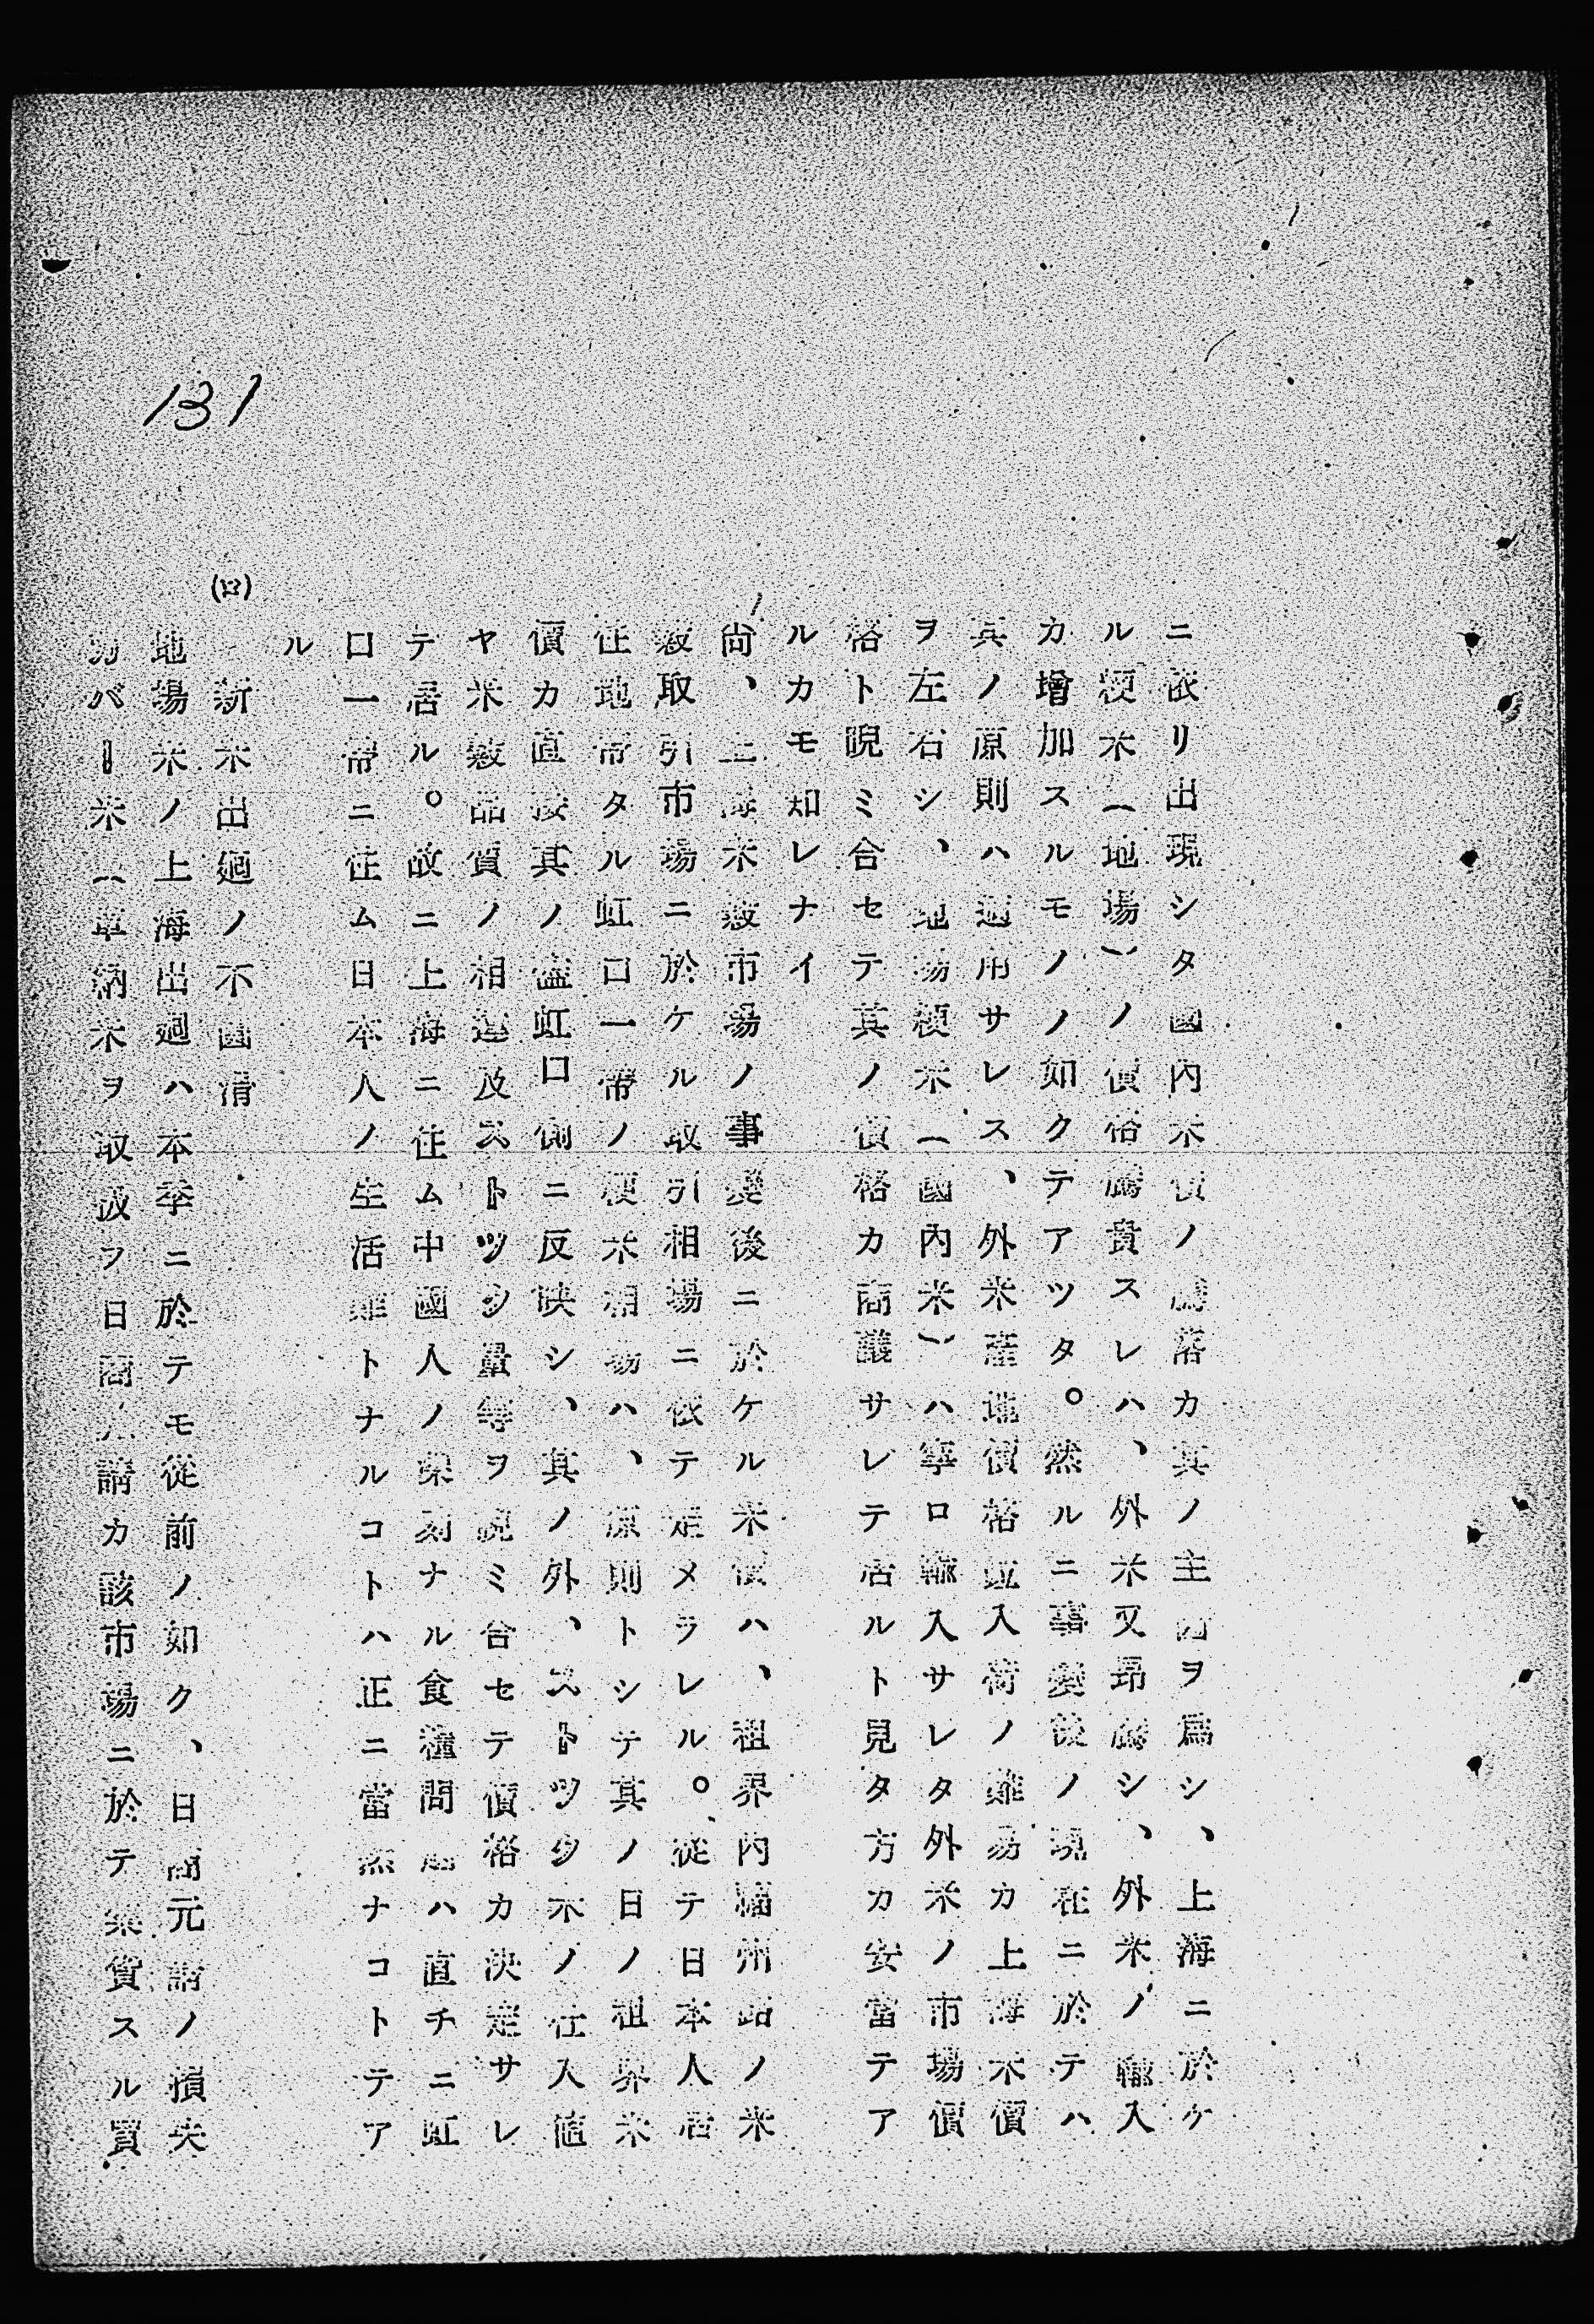 131
ニ依リ出現シタ國內米價ノ騰落カ其ノ主因ヲ爲シ、上海ニ於ケ
ル粳米(地場)ノ價格騰貴スレハ、外米又昂騰シ、外米ノ輸入
カ增加スルモノノ如クテアツタ。然ルニ事變後ノ現在ニ於テハ
其ノ原則ハ適用サレス、外米產地價格竝入荷ノ難易カ上海米價
ヲ左右シ、地場粳米(國內米)ハ寧ロ輸入サレタ外米ノ市場價
格ト睨ミ合セテ其ノ價格カ商議サレテ居ルト見タ方カ安當テア
ルカモ知レナイ
尙、上海米穀市場ノ事變後ニ於ケル米價ハ、租界內福州路ノ米
穀取引市場ニ於ケル取引相場ニ依テ定メラレル。從テ日本人居
住地帶タル虹口一帶ノ粳米相場ハ、原則トシテ其ノ日ノ租界米
價カ直接其ノ儘虹口側ニ反映シ、其ノ外、ストツク米ノ仕入値
ヤ米穀品質ノ相違及ストツク量等ヲ睨ミ合セテ價格カ決定サレ
テ居ル。故ニ上海ニ住ム中國人ノ深刻ナル食糧問題ハ直チニ虹
口一帶ニ住ム日本人ノ生活難トナルコトハ正ニ當然ナコトテア
ル
(ロ) 新米出廻ノ不圓滑
地場米ノ上海出廻ハ本季ニ於テモ從前ノ如ク、日商元請ノ損失
カバー米(軍納米ヲ取扱フ日商元請カ該市場ニ於テ業貨スル買